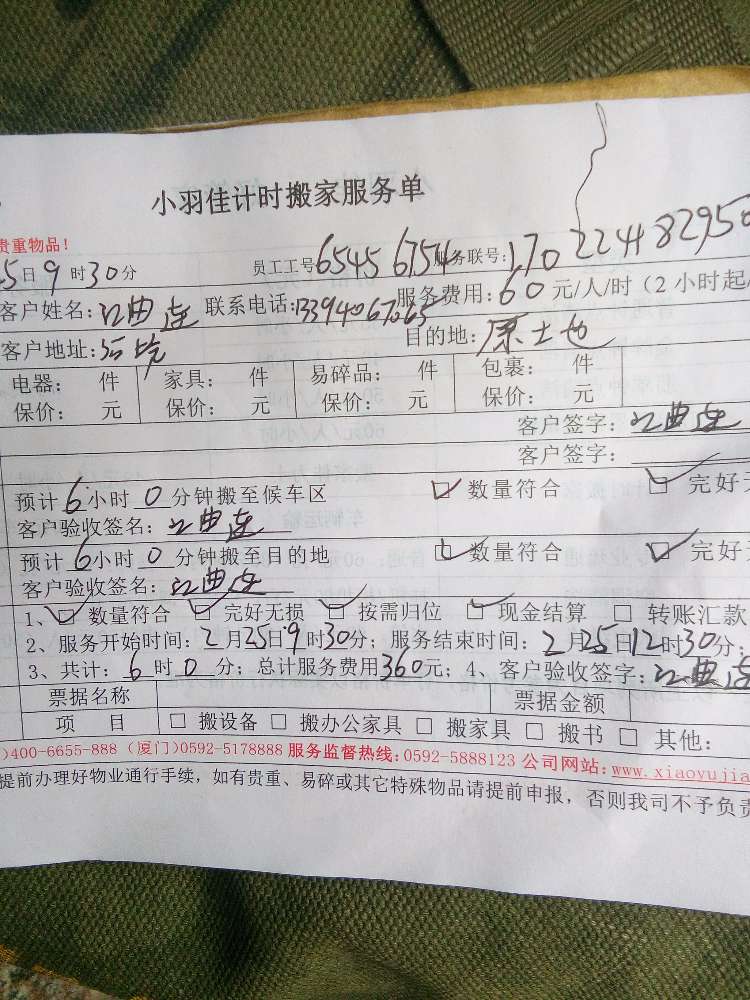 小羽佳计时搬家服务单
贵重物品！
5日9时30分 员工工号6545 6754 服务联号:170224482950
客户姓名:江曲莲 联系电话:13394067065 服务费用:60元/人/时（2小时起/
客户地址: 目的地:原土也
电器： 件 家具： 件 易碎品： 件 包裹： 件
保价： 元 保价： 元 保价： 元 保价： 元
客户签字:江曲莲
客户签字:
预计6小时0分钟搬至候车区 ☑数量符合 ☑完好无
客户验收签名:江曲莲
预计6小时0分钟搬至目的地 ☑数量符合 ☑完好无
客户验收签名:江曲莲
1、☑数量符合 ☑完好无损 ☑按需归位 ☑现金结算 □转账汇款
2、服务开始时间:2月25日9时30分；服务结束时间:2月25日12时30分；
3、共计:6时0分；总计服务费用360元；4、客户验收签字:江曲莲
票据名称 票据金额
项 目 □搬设备 □搬办公家具 □搬家具 □搬书 □其他：
)400-6655-888（厦门)0592-5178888 服务监督热线:0592-5888123 公司网站:www.xiaoyujia
提前办理好物业通行手续，如有贵重、易碎或其它特殊物品请提前申报，否则我司不予负责